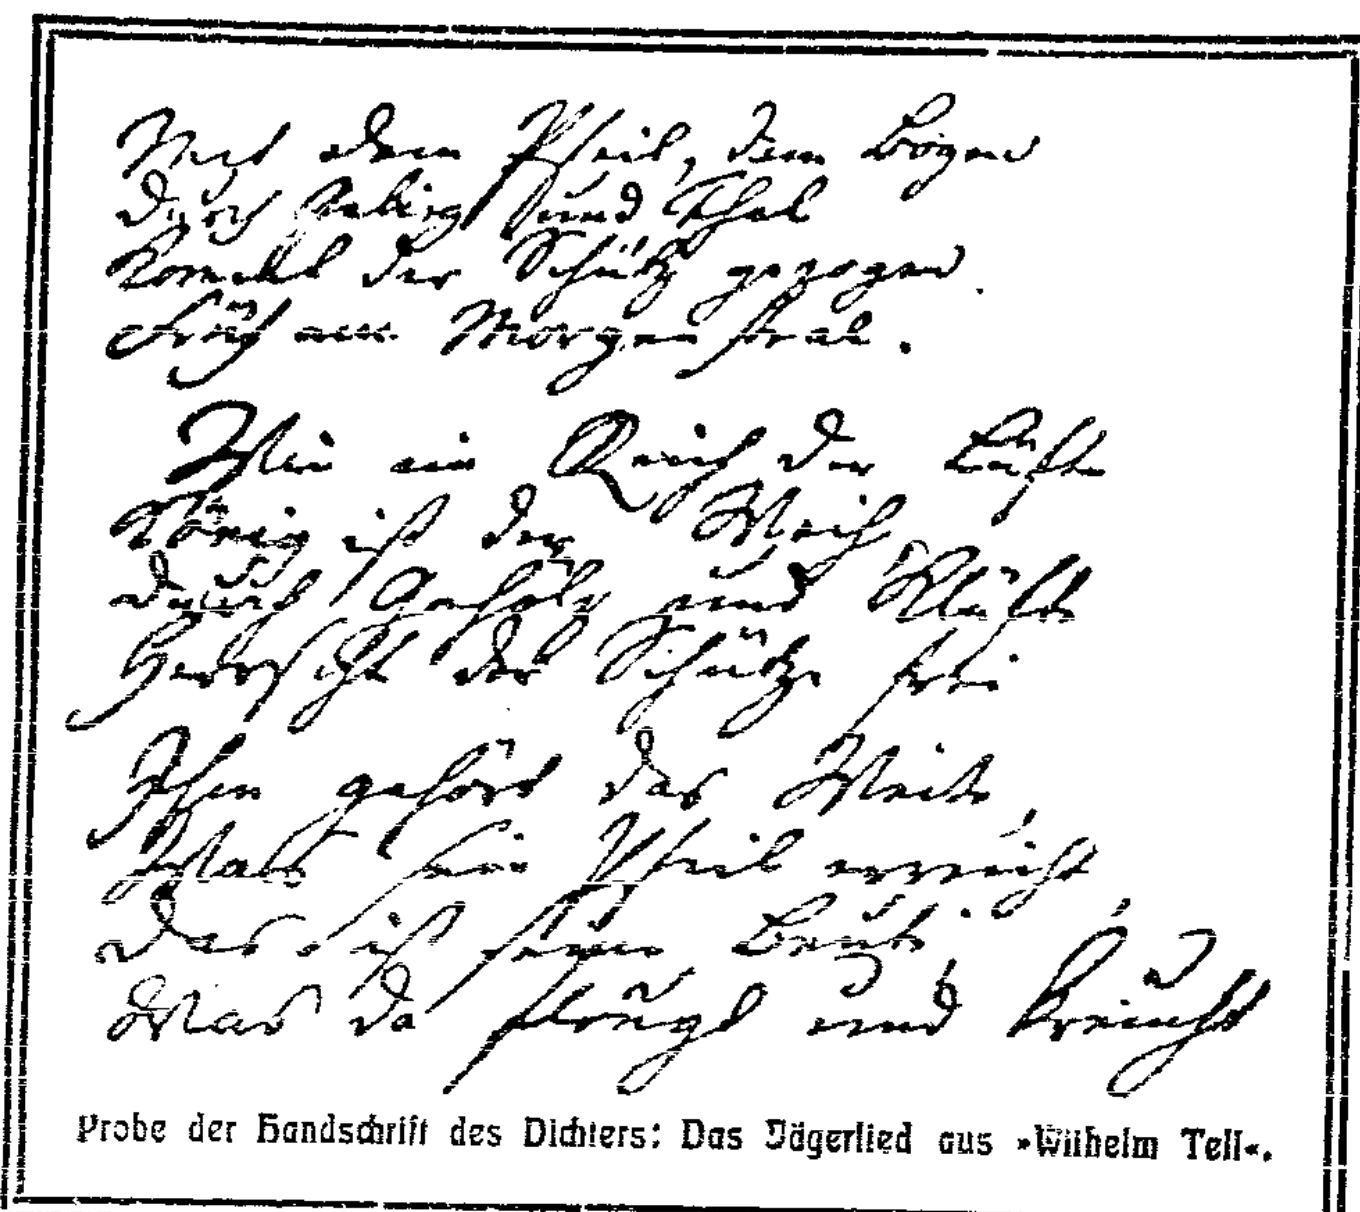 Mit dem Pfeil, dem Bogen
Durch Gebirg und Thal
Kommt der Schütz gezogen
Früh am Morgenstral.
Wie im Reich der Lüfte
König ist der Weih,
Durch Gebirg und Klüfte
Herrscht der Schütze frei
Ihm gehört das Weite,
Was sein Pfeil erreicht,
Das ist seine Beute,
Was da fleugt und kreucht
Probe der Handschrift des Dichters: Das Jägerlied aus »Wilhelm Tell«.